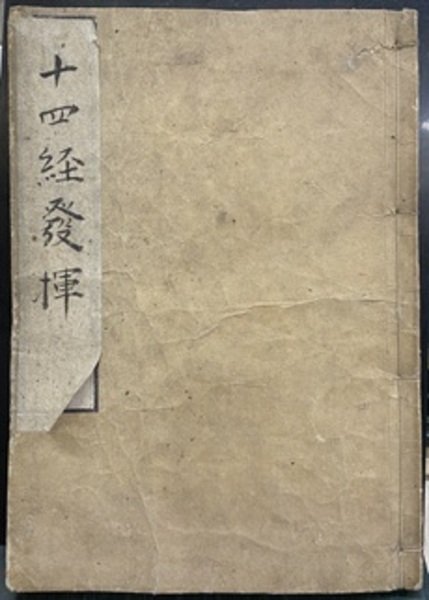 十四経發揮